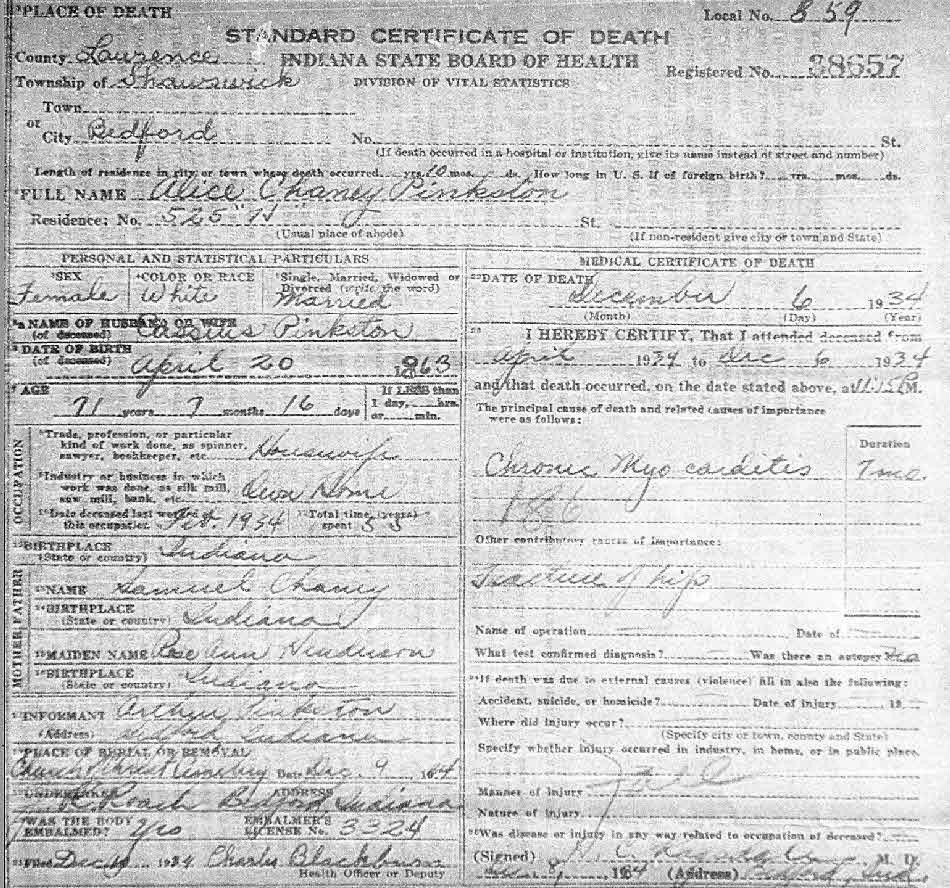 PLACE OF DEATH
Local No. 859
STANDARD CERTIFICATE OF DEATH
County Laurence
INDIANA STATE BOARD OF HEALTH
Registered No. 38657
Township of Shawswick
DIVISION OF VITAL STATISTICS
Town
or
City Bedford No. St.
(If death occurred in a hospital or institution, give its name instead of street and number)
Length of residence in city or town where death occurred yrs. 10 mos. ds. How long in U. S. if of foreign birth? yrs. mos. ds.
FULL NAME Alice Chaney Pinkston
Residence: No. 525 "H" St.
(Usual place of abode) (If non-resident give city or town and State)
PERSONAL AND STATISTICAL PARTICULARS
SEX Female
COLOR OR RACE White
Single, Married, Widowed or
Divorced (write the word)
Married
NAME OF HUSBAND OR WIFE
(of deceased) Pinkston
DATE OF BIRTH
(of deceased) April 20 1863
AGE
71 years 7 months 16 days
If LESS than
1 day, hrs.
or min.
OCCUPATION
Trade, profession, or particular
kind of work done, as spinner,
sawyer, bookkeeper, etc. Housewife
Industry or business in which
work was done, as silk mill,
saw mill, bank, etc. Own Home
Date deceased last worked at
this occupation Feb. 1934
Total time (years)
spent 55
BIRTHPLACE
(State or country) Indiana
FATHER
NAME Samuel Chaney
BIRTHPLACE
(State or country) Indiana
MOTHER
MAIDEN NAME Rose Ann Henderson
BIRTHPLACE
(State or country) Indiana
INFORMANT Arthur Pinkston
(Address) Bedford Indiana
PLACE OF BURIAL OR REMOVAL
Church Christ Cemetery Date Dec. 9
UNDERTAKER ADDRESS
Roach Bedford, Indiana
WAS THE BODY
EMBALMED? Yes
EMBALMER'S
LICENSE No. 3324
Filed Dec 10 1934 Charles Blackburn
Health Officer or Deputy
MEDICAL CERTIFICATE OF DEATH
DATE OF DEATH
December 6 1934
(Month) (Day) (Year)
I HEREBY CERTIFY, That I attended deceased from
April 1934 to Dec 6 1934
and that death occurred, on the date stated above, at M.
The principal cause of death and related causes of importance
were as follows:
Duration
Chronic Myo carditis 7 mo.
Other contributory causes of importance:
Fracture of hip
Name of operation Date of
What test confirmed diagnosis? Was there an autopsy No
If death was due to external causes (violence) fill in also the following:
Accident, suicide, or homicide? Date of injury 19
Where did injury occur?
(Specify city or town, county and State)
Specify whether injury occurred in industry, in home, or in public place.
Manner of injury
Nature of injury
Was disease or injury in any way related to occupation of deceased?
(Signed) M. D.
1934 (Address) Bedford, Ind.